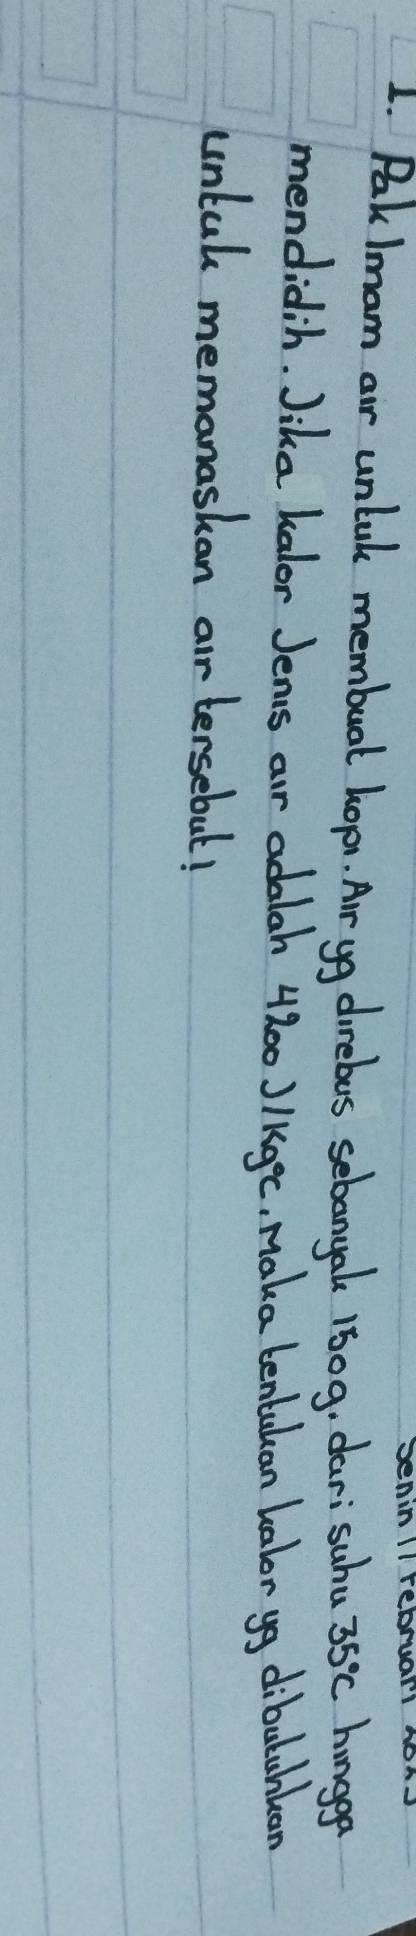 Senin 11 Februari
1. Pak Imam air untuk membuat kopi. Air yg direbus sebanyak 150g, dari suhu 35°C hingga
mendidih. Jika kalor Jenis air adalah 4200 J/Kg°C, Maka tentukan kalor yg dibutuhkan
untuk memanaskan air tersebut!